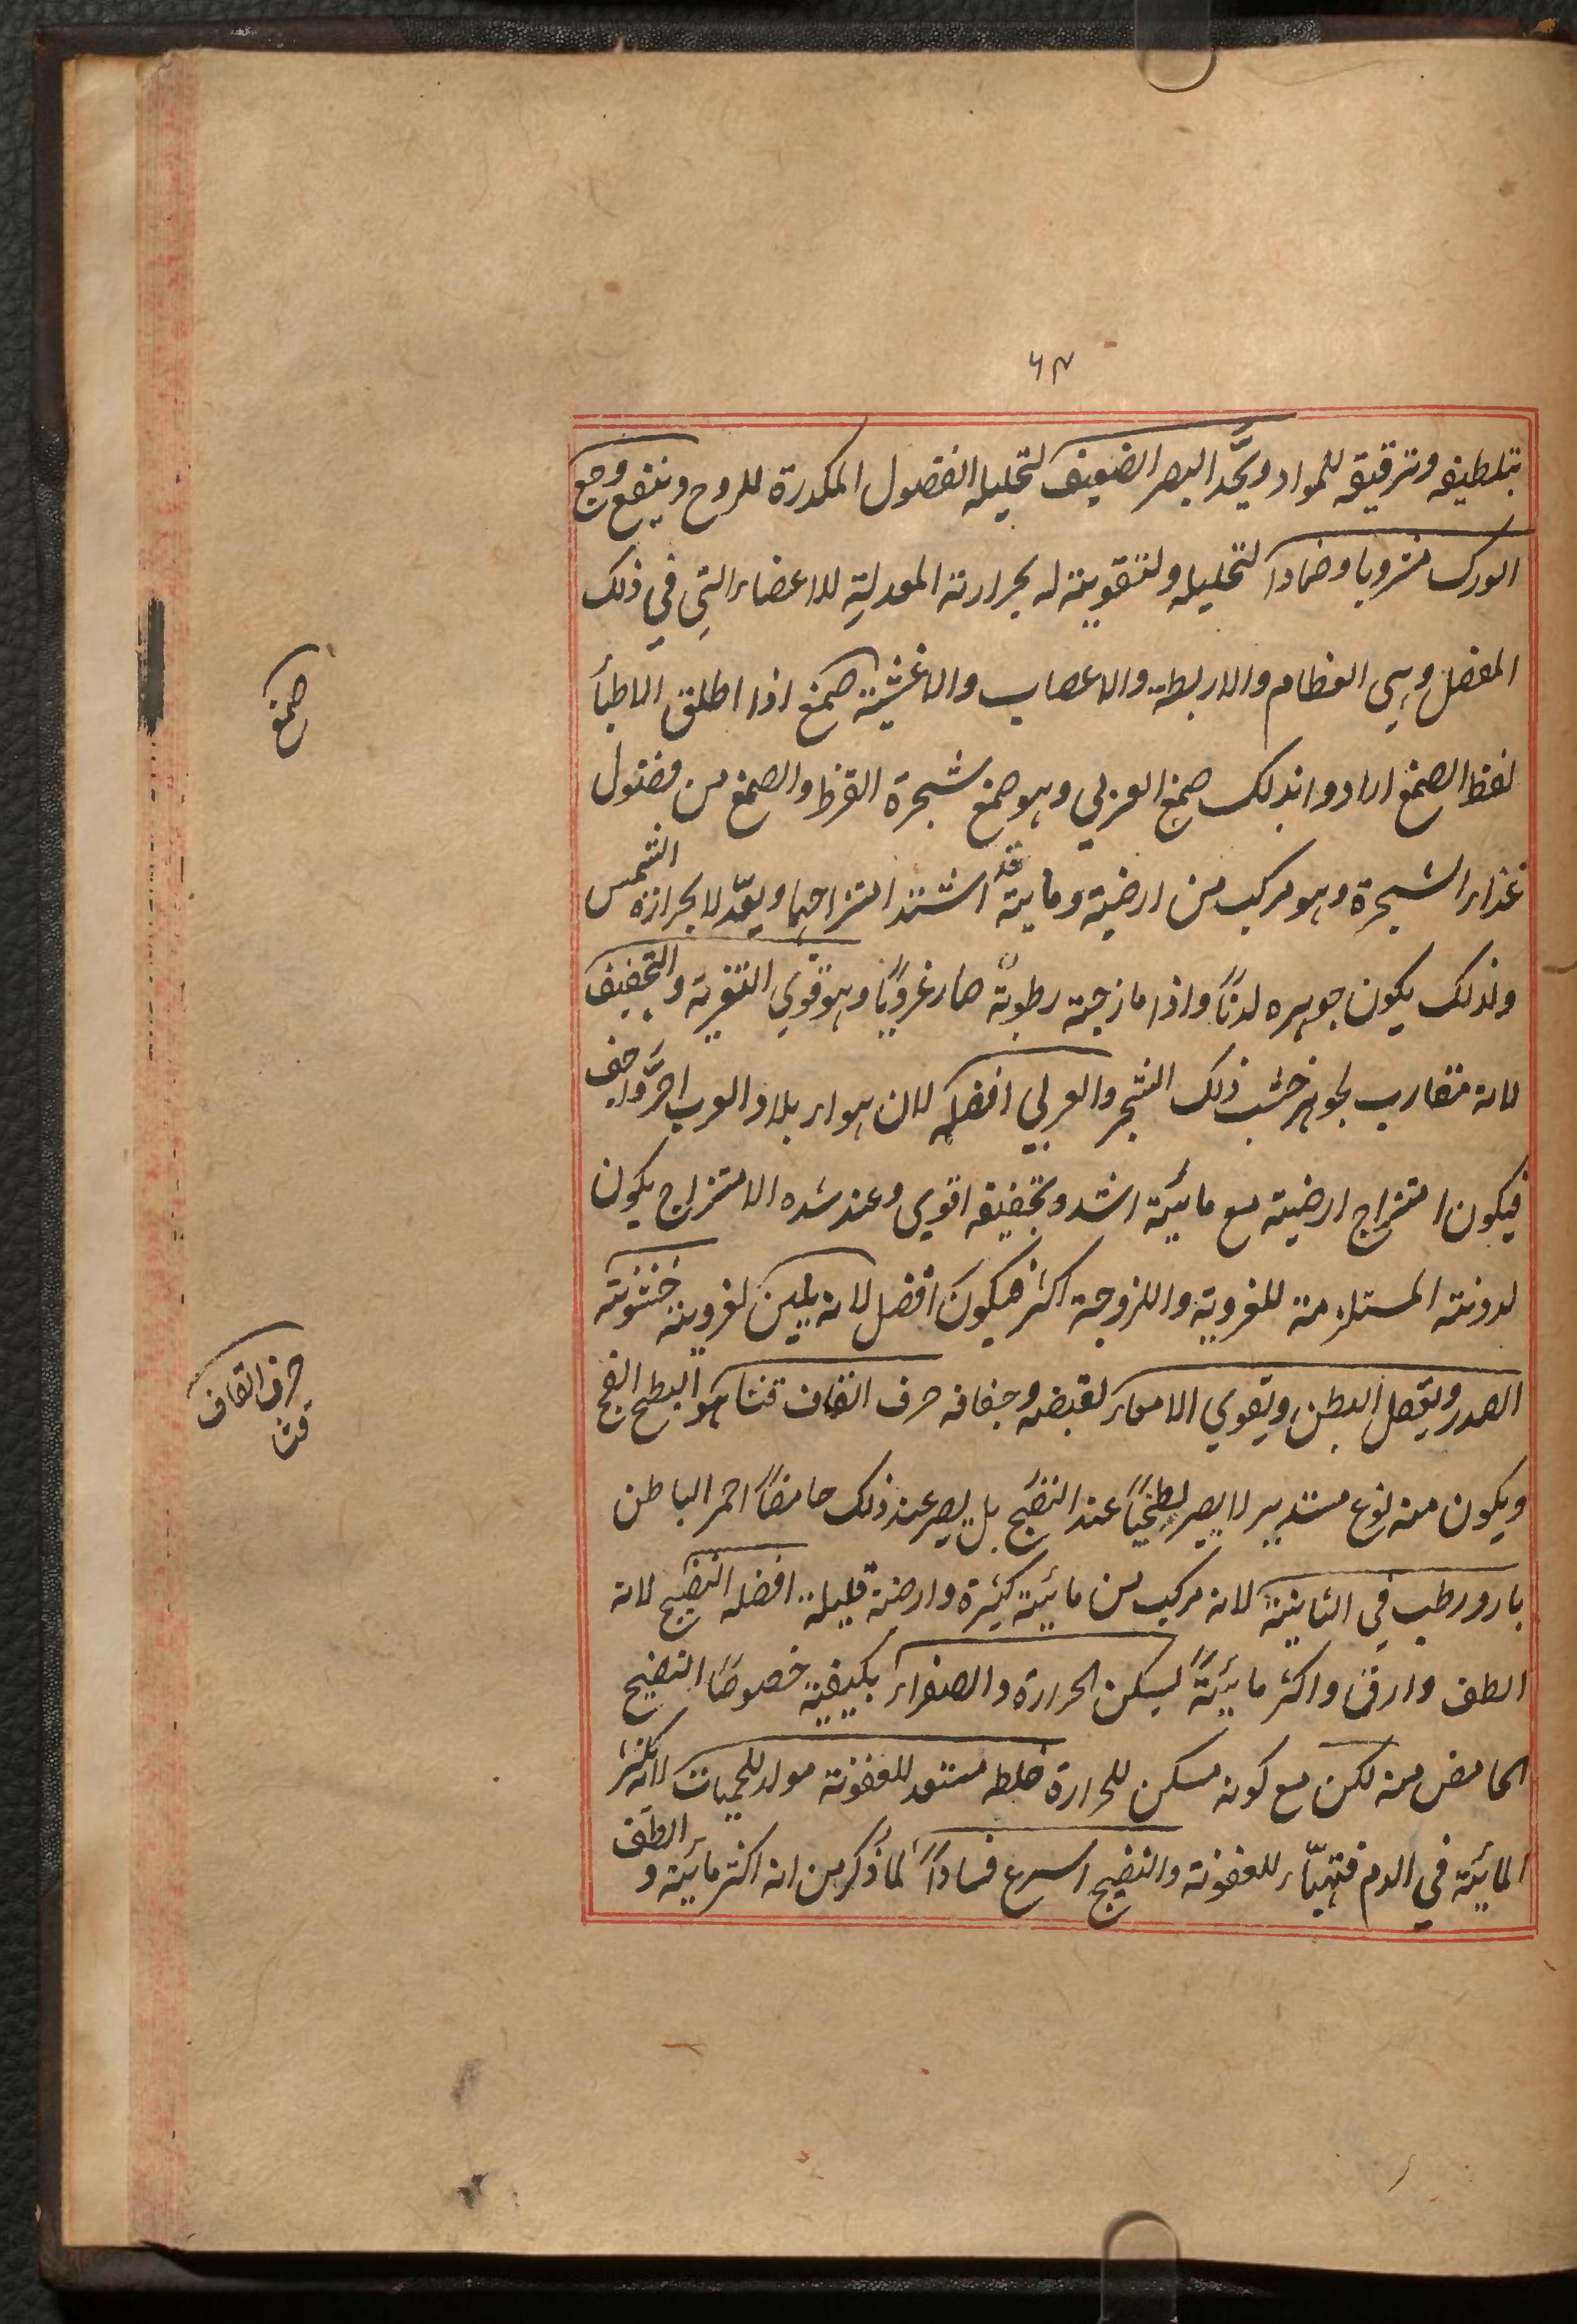 ٦٨
بتلطيفه وترقيقه للمواد ويحّد البصر الضعيف لتحليله الفضول المكدرة للروح وينفع وجع
الورك مشروبا وضمادا لتحليله ولتقويته له بحرارته المعدلةِ للاعضاء التي في ذلك
المفصل وهي العظام والاربطة والاعصاب والاغشية صمغ اذا اطلق الاطبأ
صمغ
لفظ الصمغ ارادوا بذلك صمغ العربي وهو صمغ شجرة القرظ والصمغ من فضول
غذاء الشجرة وهو مركب من ارضية ومايية قد اشتد امتزاجهما ويعّدلا بحرارة الشمس
ولذلك يكون جوهره لدنًا واذا مازجته رطوبةٌ صار غرويًا وهو قوي التغرية والتجفيف
لانه مقارب لجوهر خشب ذلك الشجر والعربي افضله لان هواء بلاد العرب احرّ واجف
فيكون امتزاج ارضيته مع مائية اشد وتجفيفه اقوي وعند شده الامتزاج يكون
لدونته المستلزمة للغروية واللزوجة اكثر فيكون افضل لانه يلين لغرويته خشونته
الصدر ويعقل البطن ويقوي الامعاء لقبضه وجفافه حرف القاف قثا هو البطيخ الفج
حرف القاف
قثا
ويكون منه نوع مستدير لا يصير بطيخيًا عند النضج بل يصير عند ذلك حامضًا احمر الباطن
بارد رطب في الثانية لانه مركب من مائية كثيرة وارضية قليلة افضله النضيج لانه
الطف وارق واكثر مائيةً يسكن الحرارة والصفراء بكيفيته خصوصًا النضيج
الحامض منه لكن مع كونه مسكن للحرارة خلطه مستعد للعفونة مولد للحميات لانه يكثر
المائية في الدم فتهيّاء للعفونة والنضيج اسرع فسادًا لما ذكر من انه اكثر مائية و الطف